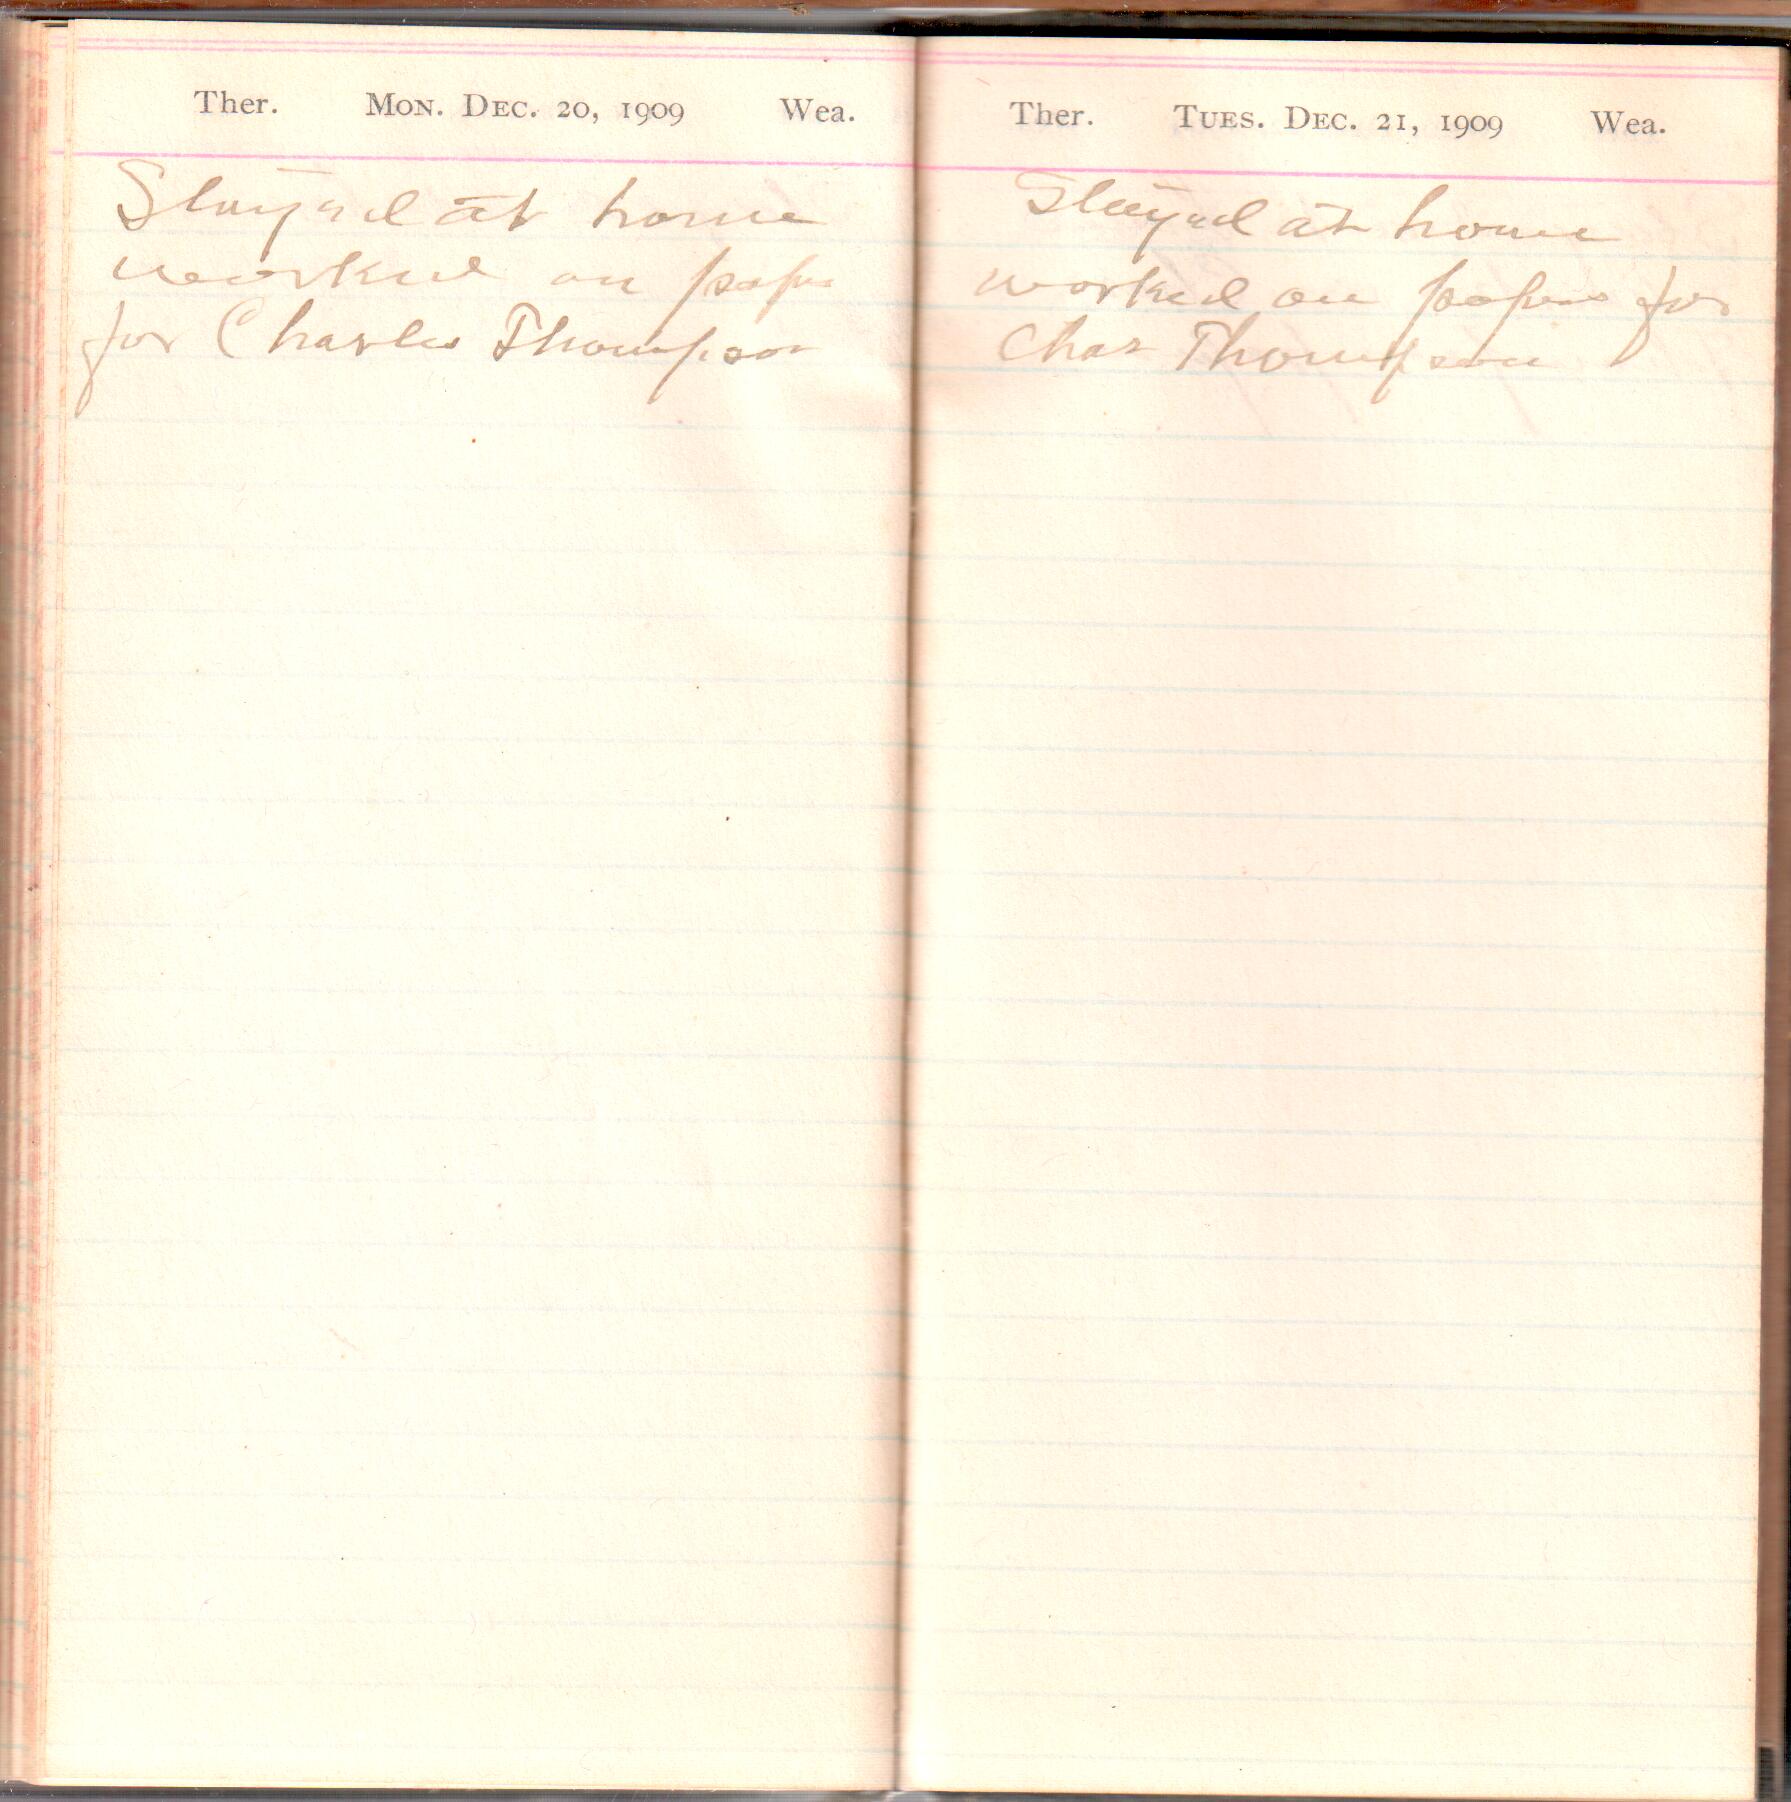 Ther. Mon. Dec. 20, 1909 Wea.
Stayed at home
worked on paper
for Charles Thompson
Ther. Tues. Dec. 21, 1909 Wea.
Stayed at home
worked on papers for
Chas Thompson